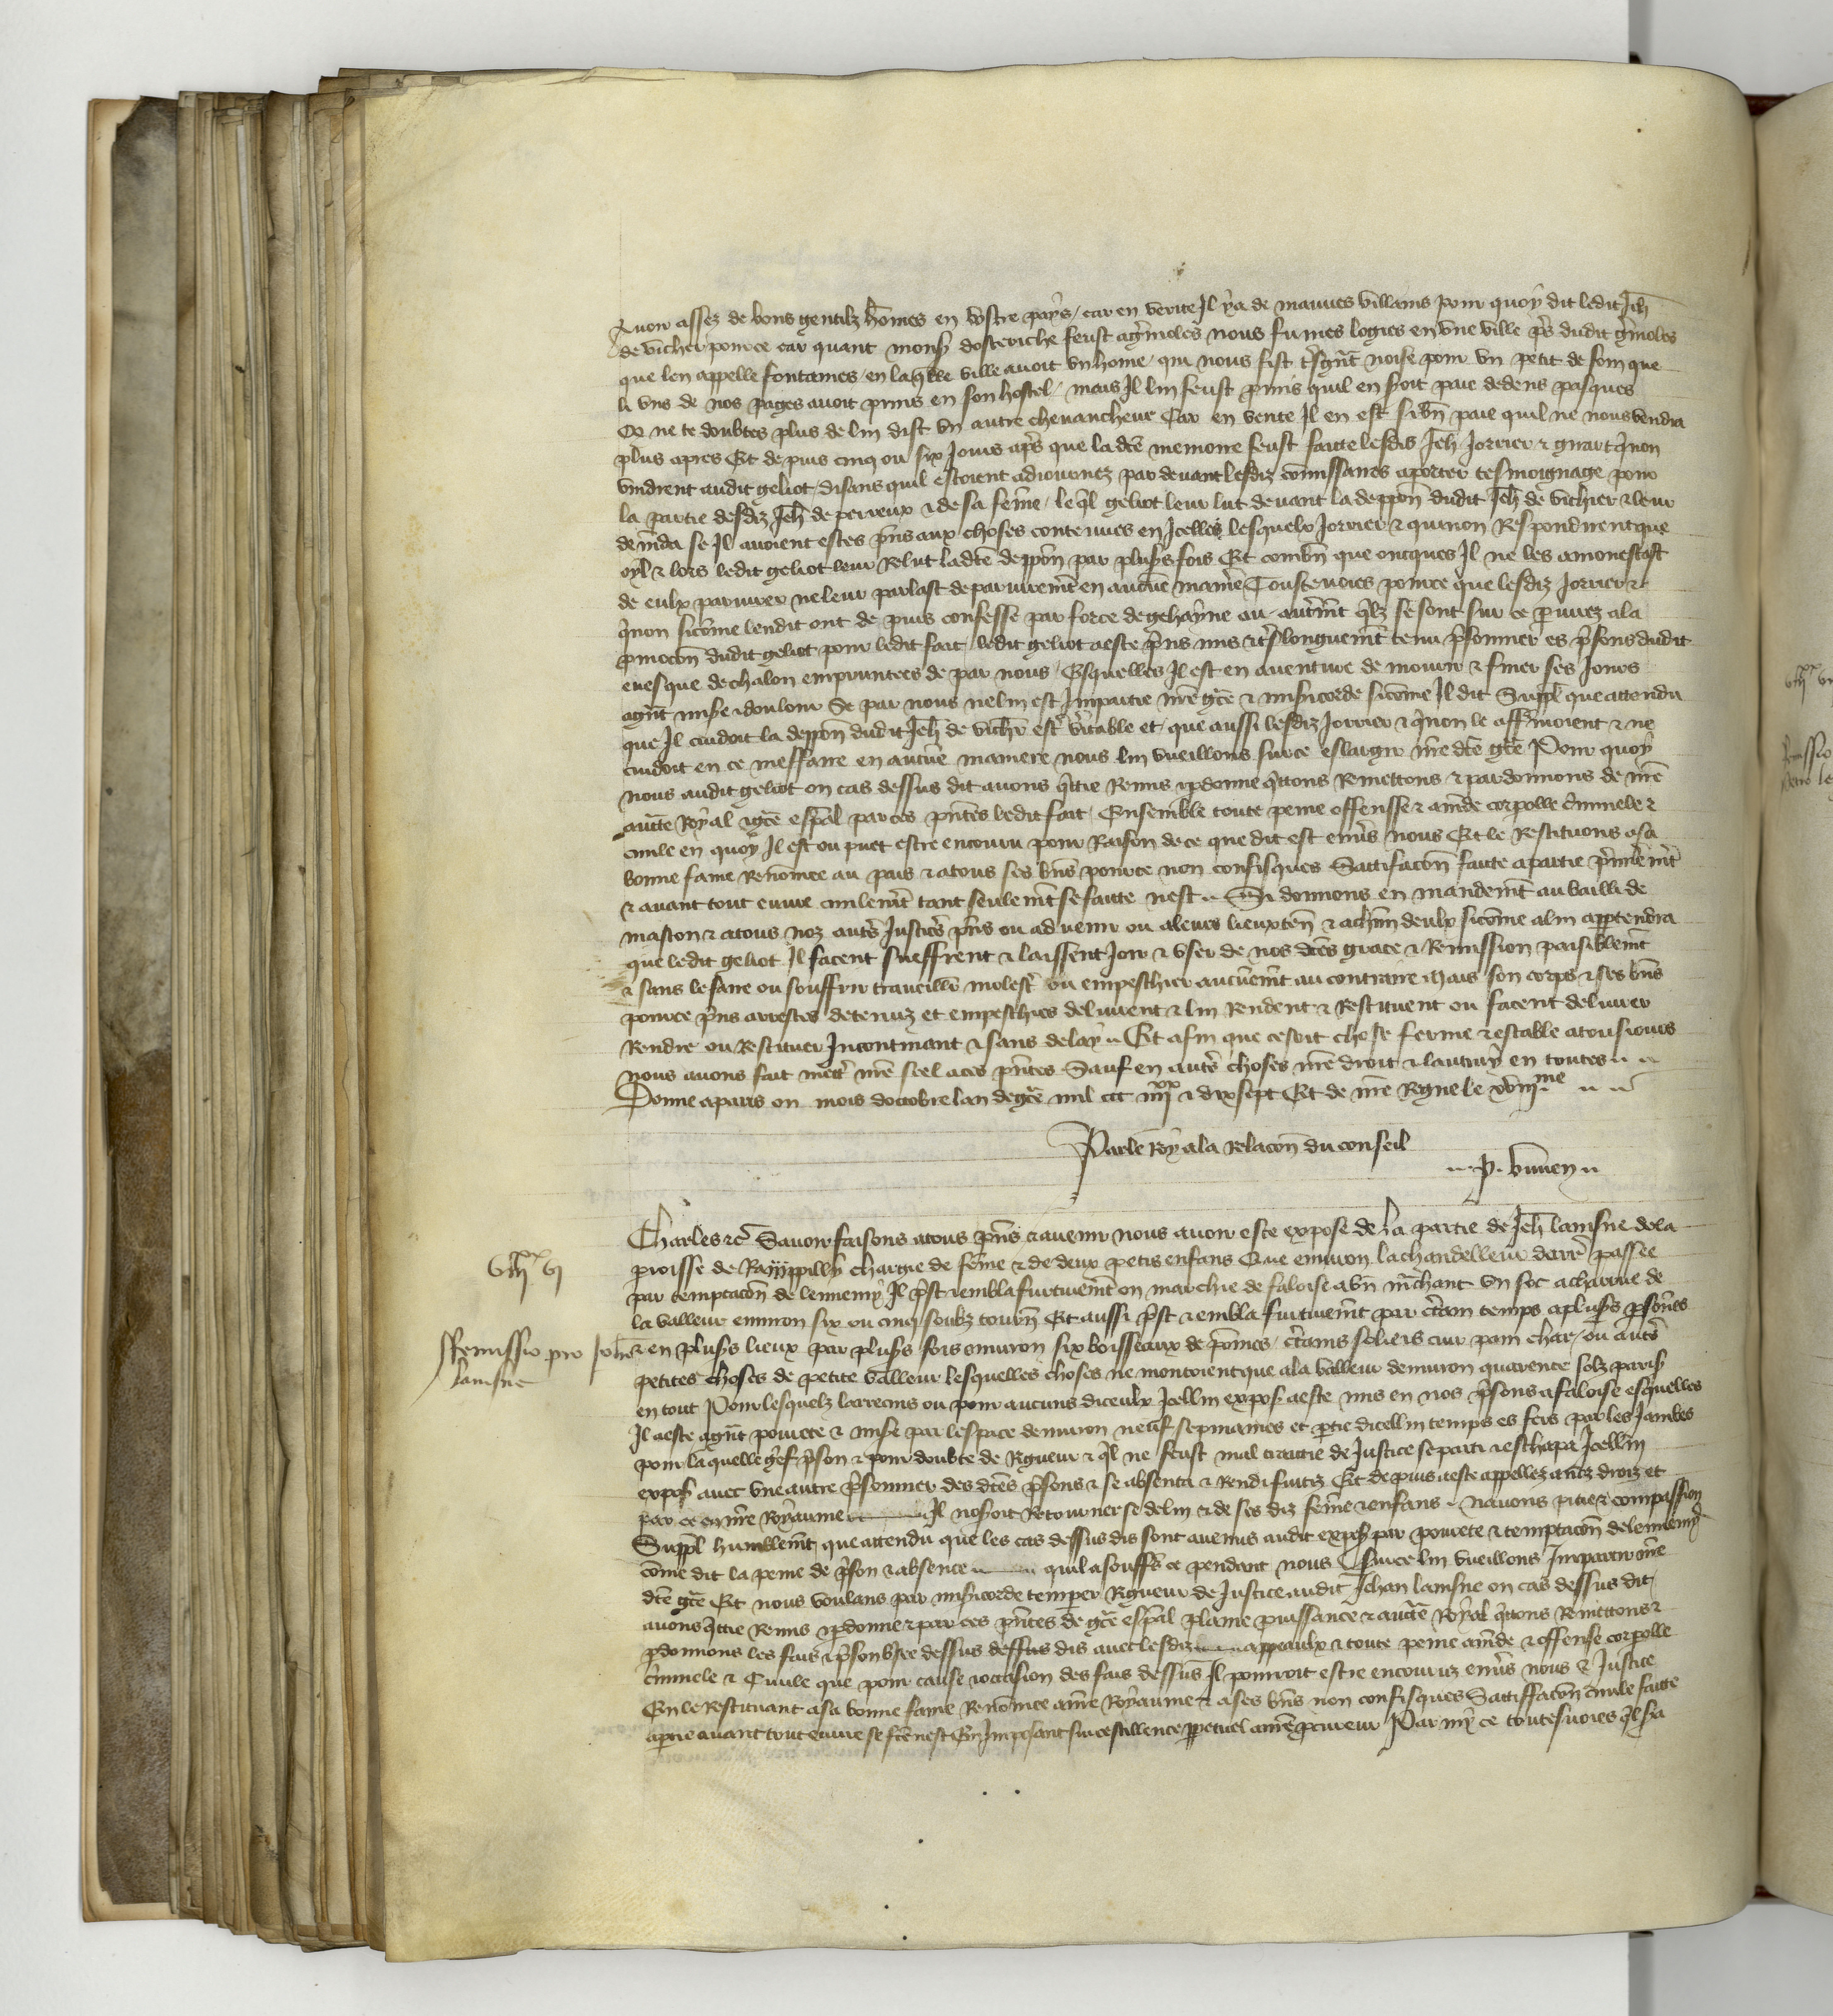 Avoir assez de bons gentilz hom̄es en vostre pays / car en verite Il y a de mauves villains pour quoy dit ledit Jeh̄
de vicher pource car quant mons̄ dosteriche feust a gremoles nous fumes logies en vne ville p̄s dudit gremoles
que len appelle fontaines / en laq̄lle ville auoit vn home / qui nous fist t̄sgn̄t noise pour vn petit de foin que
li vns de nos pages auoit prins en son hostel / mais Il lui feust promis quil en seroit paie dedens pasques
Or ne te doubtes plus de lui dist vn autre cheuaucheur Car en verite Il en est si bn̄ paie quil ne nous vendra
plus apres Et de puis cinq ou six Jours ap̄s que lad̄ce memoire feust faitte lesdis Jeh̄ Jorrier & guiart q̄non
vindrent audit geliot / disans quil estoient adiournez par deuant lesdiz com̄issaires a porter tesmoignage pour
la partie desdiz Jeh̄ de perreux & de sa fem̄e / leq̄l geliot leur lut deuant la deppōn dudit Jeh̄ de vichier & leur
demāda se Il auoient estes pn̄s aux choses contenues en Icelles lesquelx Jorrier & quinon Respondirent que
oyl & lors ledit geliot leur Relut lad̄ce deppōn par plus̄s fois Et combn̄ que oncques Il ne les amonestast
de eulx pariurer ne leur parlast de pariurem̄t en aucūe manie᷑ Toutesuoies pource que lesdiz Jorrier &
q̄non sicōme lendit ont de puis confesse par force de gehayne ou autrem̄t q̄lz se sont sur ce p̄iurez a la
pmocōn dudit geliot pour ledit fait / ledit geliot a este prins mis & t̄s longuem̄t tenu p̄sonnier es p̄sons dudit
euesque de chalon empruntees de par nous / Esquelles Il est en auenture de mourir & finer ses Jours
a gn̄t misere & doulour Se par nous ne lui est Impartie nr̄e gr̄ce & misericorde sicōme Il dit Suppl̄ que attendu
que Il cuidoit la deppōn dudit Jeh̄ de vichier est᷑ v̄itable et / que aussi lesdiz Jorrier & q̄non le affermoient & ne
cuidoit en ce meffaire en aucūe maniere nous lui vueillons sur ce eslargir nr̄e d̄ce gr̄ce Pour quoy
nous audit geliot ou cas dessus dit auons q̄ttie Remis & pdonne q̄ttons Remettons & pardonnons de nr̄e
auct̄e Royal & gr̄ce esp̄al par ces pn̄tes ledit fait / Ensemble toute peine offensse & am̄de corpolle criminele &
ciuile en quoy Il est ou puet estre encouru pour Raison de ce que dit est enuers nous Et le Restituons a sa
bonne fame Renōmee au pais & a tous ses bn̄s pource non confisques Sattiffacōn faitte a partie p̄mierem̄t
& auant tout euure ciuilem̄t tant seulem̄t se faitte nest .. Si donnons en mandem̄t au bailli de
mascon & a tous noz aut᷑s Justic̄s pn̄s ou aduenir ou a leurs lieuxten̄ & a ch̄un deulx sicōme a lui appartendra
que ledit geliot Il facent sueffrent & laissent Joir & vser de nos d̄ces grace & Remission paisiblem̄t
& sans le faire ou souffrir trauaillier molest᷑ ou empeschier aucunem̄t au contraire Mais son corps & ses bn̄s
pource prins arrestes detenuz et empeschies deliurent & lui Rendent & Restituent ou facent deliurer
Rendre ou Restituer Incontinant & sans delay .. Et afin que ce soit chose ferme & estable a tousiours
nous auons fait mett᷑ nr̄e scel a ces pn̄tes Sauf en aut᷑s choses nr̄e droit & lautruy en toutes .. ..
Donne a paris ou mois doctobre lan de gr̄ce mil ccc iiii xx & dix sept Et de nr̄e Regne le xviii me .. ..
Par le Roy a la Relacōn du conseil
.. p. viuien ..
Charles &c̄ Sauoir faisons a tous pn̄s & auenir nous auoir este expose de la partie de Jeh̄ lainsne de la
proisse de Rappilly chargie de fem̄e & de deux petis enfans Que enuiron la chandelleur derr̄e passee
par temptacōn de lennemy Il prist & embla furtiuem̄t ou marchie de faloise a vn m̄chant vn soc a charrue de
la valleur enuiron six ou cinq soulz tourn̄ Et aussi prist & embla furtiuem̄t par c̄tain temps a plus̄s p̄sōnes
& en plus̄s lieux par plus̄s fois enuiron six boisseaux de pōmes / c̄tains soliers cuir pain char / ou aut᷑s
petites choses de petite valleur lesquelles choses ne montoient que a la valleur denuiron quarente solz paris̄
en tout Pour lesquelz larrecins ou pour aucuns diceulx Icellui expos̄ a este mis en nos p̄sons a faloise esquelles
Il a este a gn̄t pourete & mis̄e par lespace denuiron neuf sepmaines et p̄tie dicellui temps es fers par les Jambes
pour laquelle ḡef p̄son & pour doubte de Rigueur & q̄l ne feust mal traittie de Justice se parti & eschapa Icellui
expos̄ auec vne autre p̄sonnier des d̄ces p̄sons & se absenta & Rendi fuitiz Et depuis a este appellez a noz droiz et
par ce en nr̄e Royaume Il nosoit Retourner se de lui & de ses diz fem̄e & enfans nauons pitie & compassion
Suppl̄ humblem̄t que attendu que les cas dessus dis sont auenus audit expos̄ par pourete & temptacōn de lennemy
cōme dit la peine de p̄son & absence quil a souff̄s ce pendant nous sur ce lui vueillons Impartir nr̄e
d̄ce gr̄ce Et nous voulans par misericorde temp̄er Rigueur de Justice audit Jehan lainsne ou cas dessus dit
auons q̄ttie Remis & pdonne & par ces pn̄tes de gr̄ce esp̄al plaine puissance & auct̄e Royal q̄ttons Remettons &
pdonnons les fais & p̄son bsee dessus dessus dis auec lesdiz appeaulx & toute peine am̄de & offense corpolle
c̄minele & Ciuile que pour cause & occasion des fais dessus Il pourroit estre encouruz enu̅s nous & Justice
En le Restituant a sa bonne fame Renōmee a nr̄e Royaume & a ses bn̄s non confisques Sattiffacōn ciuile faitte
a p̄tie auant tout euure se f̄ce nest En Imposant sur ce sillence ppetuel a nr̄e procureur Par my ce toutesuoies q̄l sa
viii xx vi
Remissio pro Joh̄e
lainsne